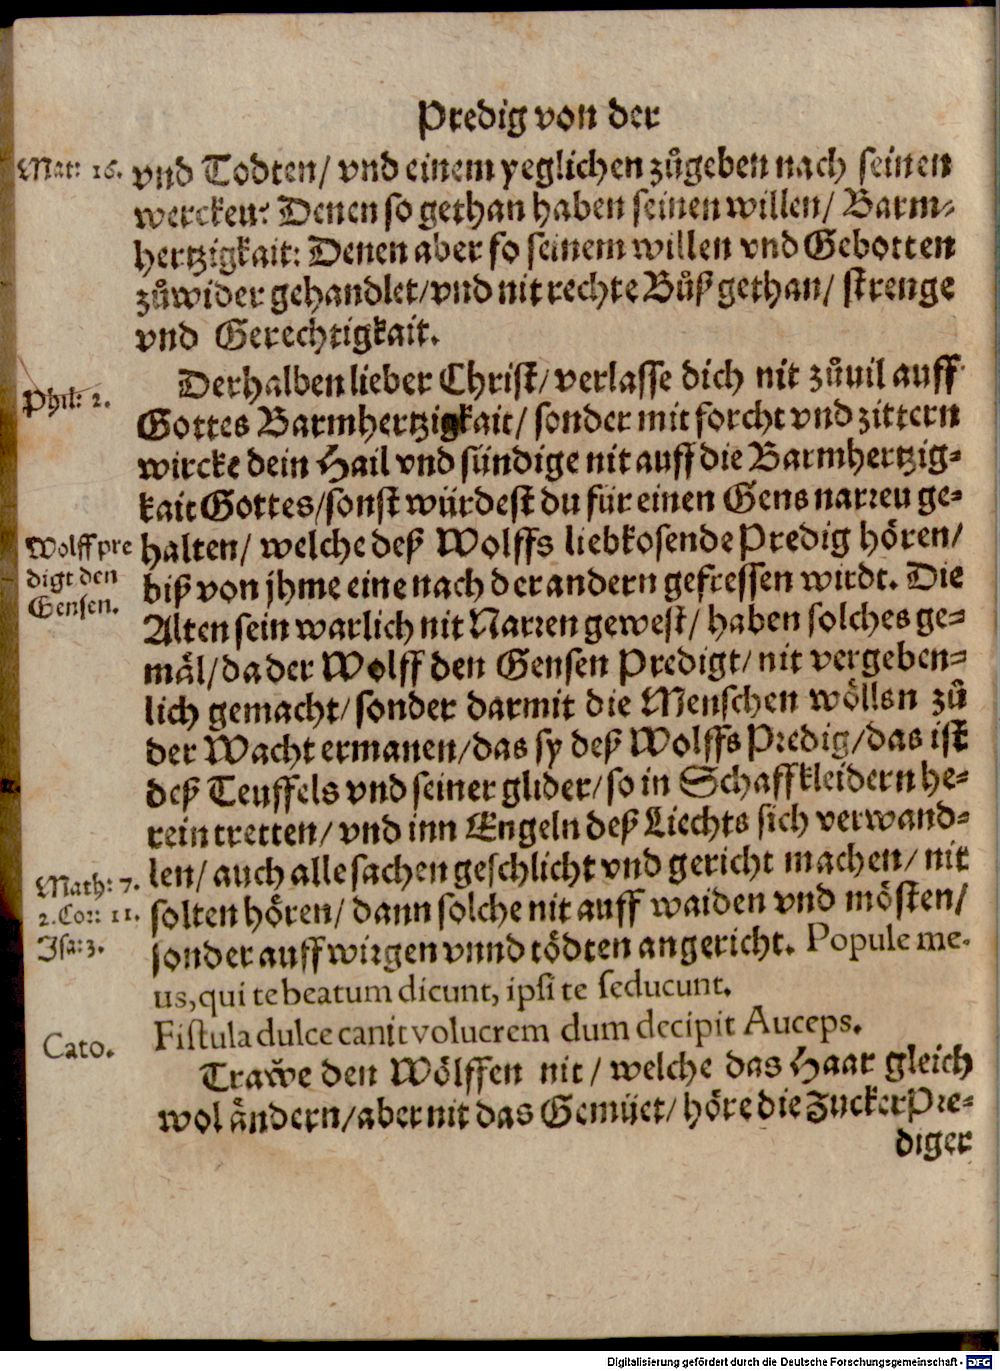 Predig von der
Mat: 16.
vnd Todten/ vnd einem yeglichen zůgeben nach seinen
wercken: Denen so gethan haben seinen willen/ Barm-
hertzigkait: Denen aber so seinem willen vnd Gebotten
zůwider gehandlet/vnd nit rechte Bůß gethan/ strenge
vnd Gerechtigkait.
Phil: 2.
Derhalben lieber Christ/ verlasse dich nit zůuil auff
Gottes Barmhertzigkait/ sonder mit forcht vnd zittern
wircke dein Hail vnd sündige nit auff die Barmhertzig-
kait Gottes/sonst würdest du für einen Gens narren ge-
Wolff pre
digt den
Gensen.
halten/ welche deß Wolffs liebkosende Predig hören/
biß von jhme eine nach der andern gefressen wirdt. Die
Alten sein warlich nit Narren gewest/ haben solches ge-
mäl/da der Wolff den Gensen Predigt/ nit vergeben-
lich gemacht/ sonder darmit die Menschen wöllen zů
der Wacht ermanen/das sy deß Wolffs Predig/das ist
deß Teuffels vnd seiner glider/so in Schaffkleidern he-
rein tretten/ vnd inn Engeln deß Liechts sich verwand-
Math: 7.
2. Cor: 11.
Isa: 3.
len/ auch alle sachen geschlicht vnd gericht machen/ nit
solten hören/ dann solche nit auff waiden vnd mösten/
sonder auff wirgen vnnd tödten angericht. Popule me-
us, qui te beatum dicunt, ipsi te seducunt.
Cato.
Fistula dulce canit volucrem dum decipit Auceps.
Trawe den Wölffen nit / welche das Haar gleich
wol ändern/aber nit das Gemüet/ höre die Zucker Pre-
diger
Digitalisierung gefördert durch die Deutsche Forschungsgemeinschaft - DFG